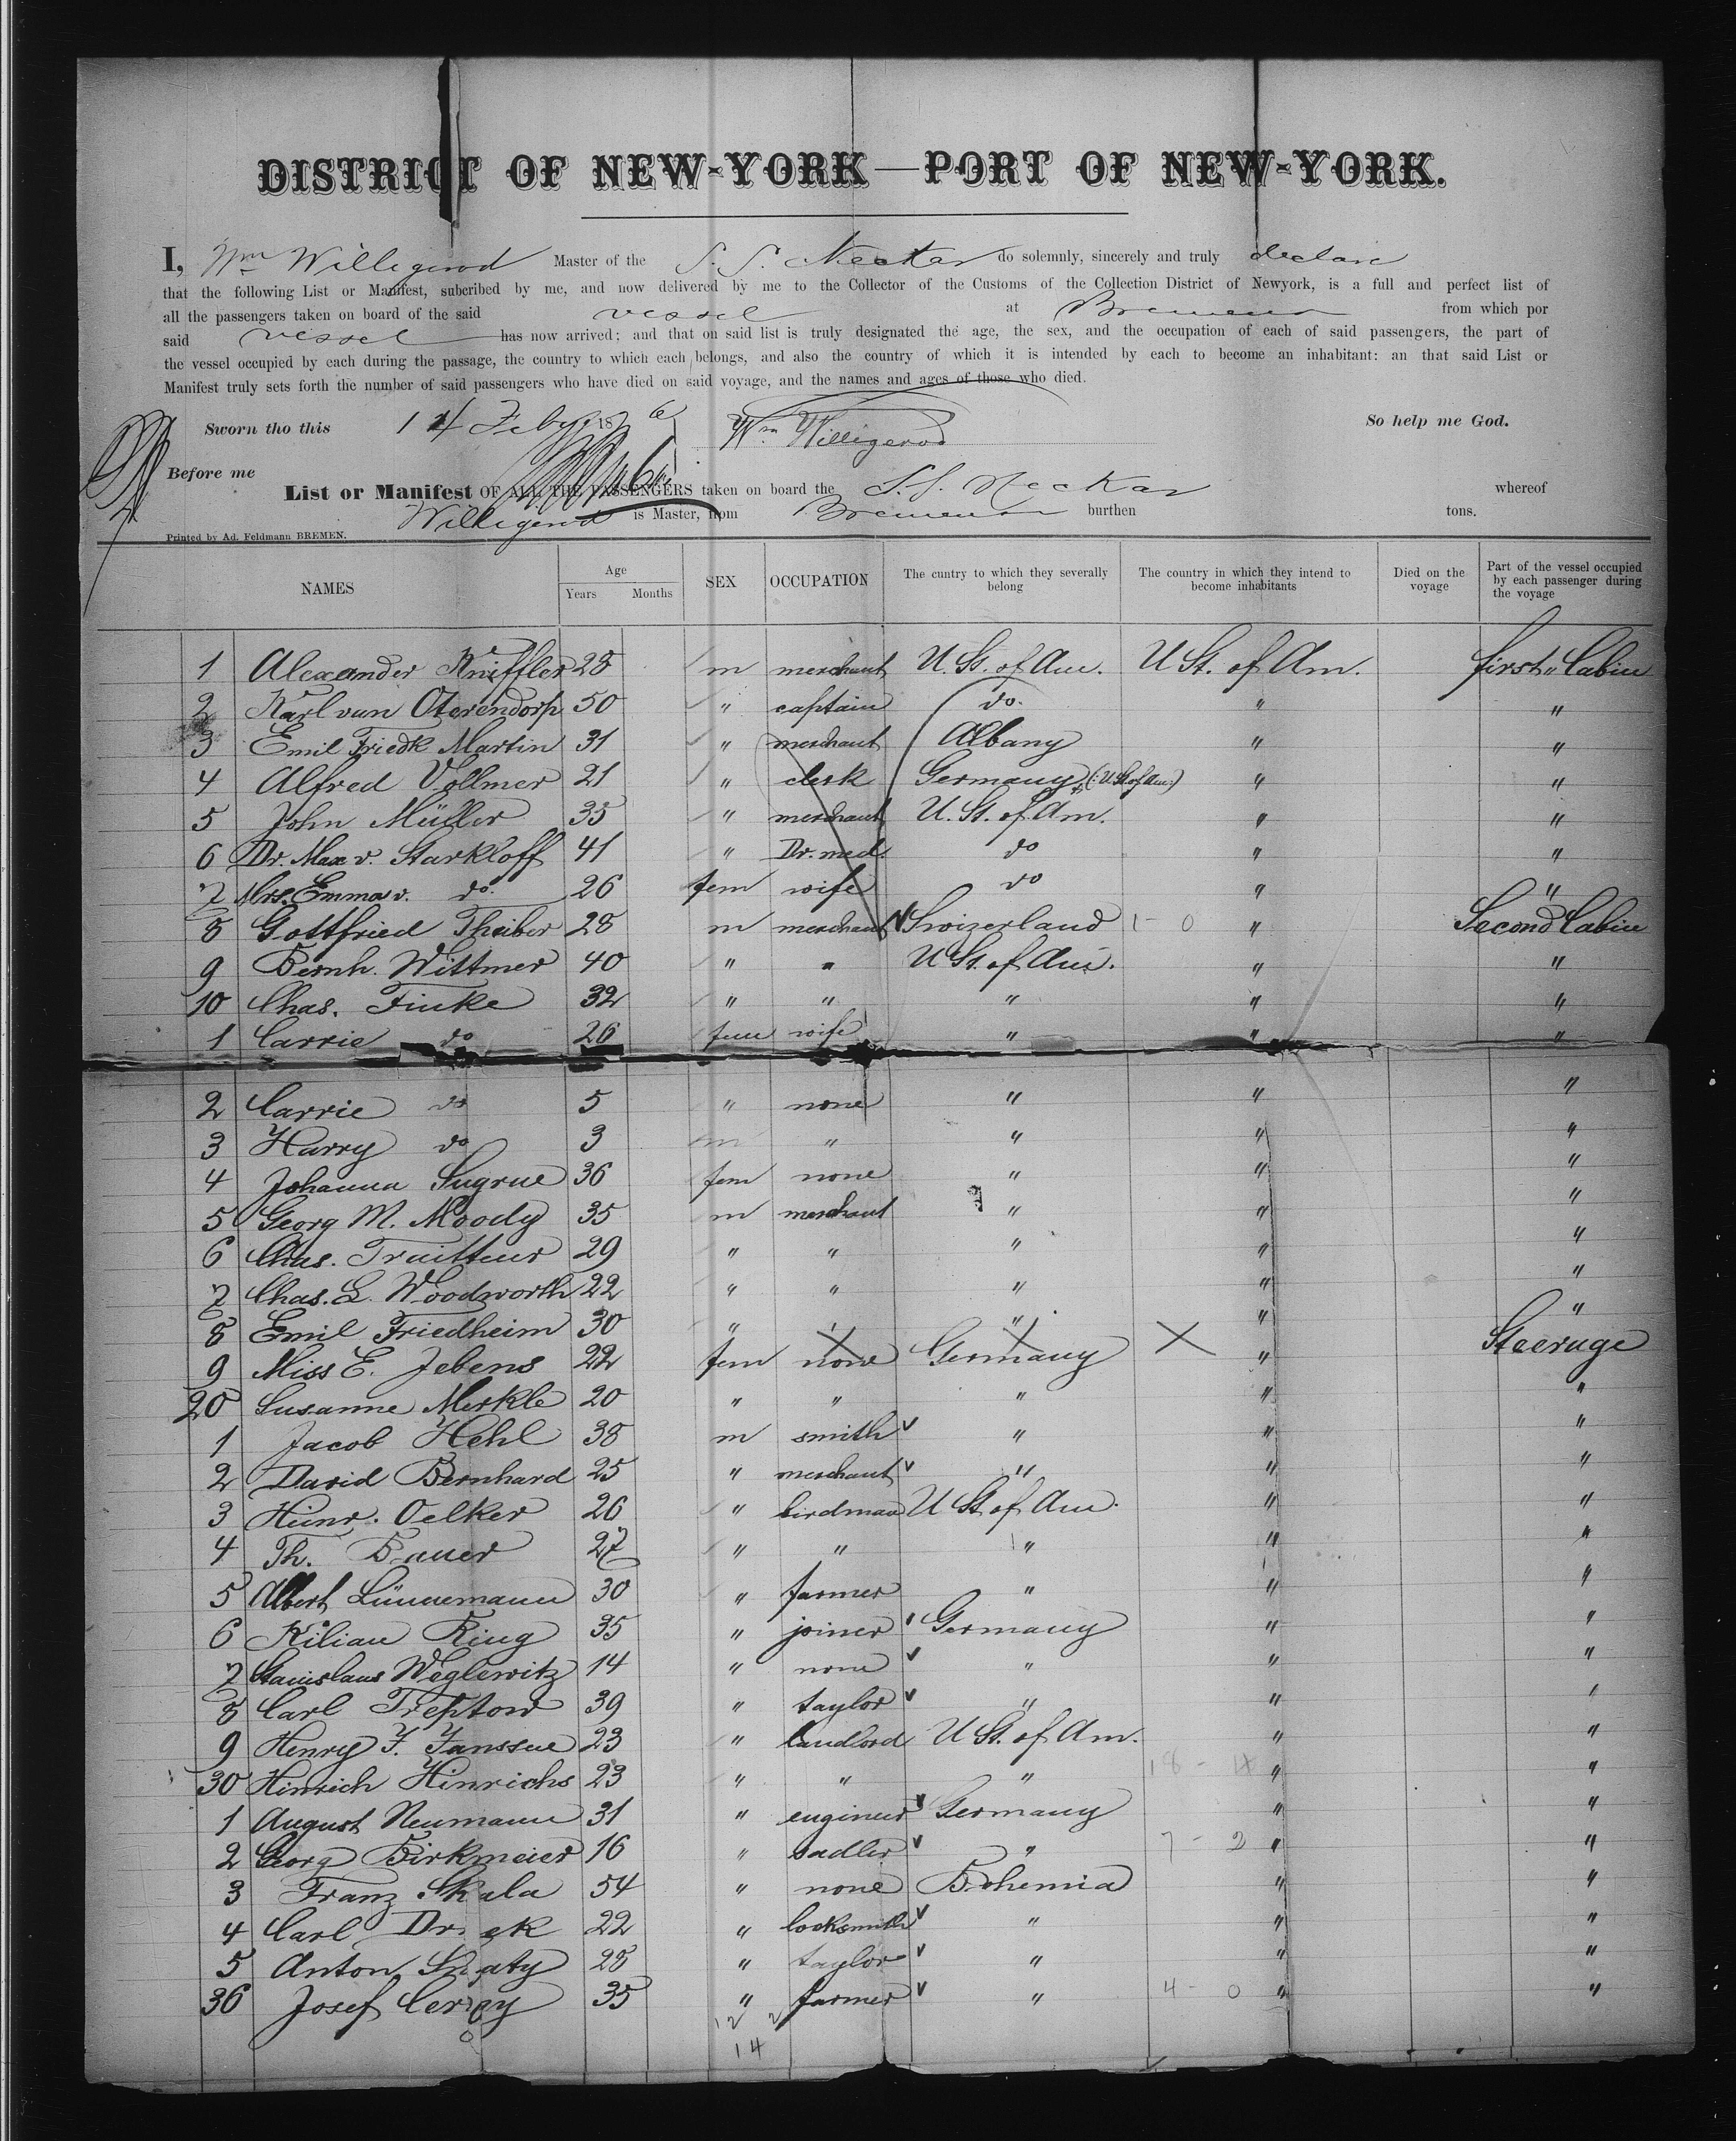 DISTRICT OF NEW-YORK—PORT OF NEW-YORK.
I, Wm Willigerod Master of the S. S. Neckar do solemnly, sincerely and truly declare
that the following List or Manifest, subcribed by me, and now delivered by me to the Collector of the Customs of the Collection District of Newyork, is a full and perfect list of
all the passengers taken on board of the said vessel at Bremen from which por
said vessel has now arrived; and that on said list is truly designated the age, the sex, and the occupation of each of said passengers, the part of
the vessel occupied by each during the passage, the country to which each belongs, and also the country of which it is intended by each to become an inhabitant: an that said List or
Manifest truly sets forth the number of said passengers who have died on said voyage, and the names and ages of those who died.
Sworn tho this 14 Feby 1876 Wm Willigerod So help me God.
Before me
List or Manifest OF ALL THE PASSENGERS taken on board the S. S. Neckar whereof
Willigerod is Master, from Bremen burthen tons.
Printed by Ad. Feldmann BREMEN.
NAMES Age Years Months SEX OCCUPATION The cuntry to which they severally belong The country in which they intend to become inhabitants Died on the voyage Part of the vessel occupied by each passenger during the voyage
1 Alexander Kniffler 25 m merchant U. St. of Am. U St. of Am. first " Cabin
2 Karl van Oterendorp 50 " captain do. " "
3 Emil Friedk Martin 31 " merchant Albany " "
4 Alfred Vollmer 21 " clerk Germany (: U. St. of Am :) " "
5 John Müller 35 " merchant U. St. of Am. " "
6 Dr. Max v. Starkloff 41 " Dr. med. do " "
7 Mrs. Emma v. do. 26 fem wife do " "
8 Gottfried Theiber 28 m merchant Swizerland 1 - 0 " Second Cabin
9 Bernh. Wittmer 40 " " U St. of Am. " "
10 Chas. Finke 32 " " " " "
1 Carrie do 26 fem wife " " "
2 Carrie do 5 " none " " "
3 Harry do 3 m " " " "
4 Johanna Sugrue 36 fem none " " "
5 Georg M. Moody 35 m merchant " " "
6 Chas. Traitteur 29 " " " " "
7 Chas. L. Woodworth 22 " " " " "
8 Emil Friedheim 30 " " " " "
9 Miss E. Jebens 22 fem none Germany " Steerage
20 Susanne Merkle 20 " " " " "
1 Jacob Hehl 38 m smith " " "
2 David Bernhard 25 " merchant " " "
3 Heinr. Oelker 26 " birdman U St of Am. " "
4 Th. Bauer 27 " " " " "
5 Albert Lünnemann 30 " farmer " " "
6 Kilian Ring 35 " joiner Germany " "
7 Stanislaus Weglewitz 14 " none " " "
8 Carl Treptow 39 " taylor " " "
9 Henry F. Janssen 23 " landlord U St. of Am. " "
30 Hinrich Hinrichs 23 " " " 18 - 4 " "
1 August Neumann 31 " engineer Germany " "
2 Georg Birkmeier 16 " sadler " 7 - 2 " "
3 Franz Skala 54 " none Bohemia " "
4 Carl 22 " locksmith " " "
5 Anton 28 " taylor " " "
36 Josef 35 " farmer " 4 - 0 " "
12 2
14